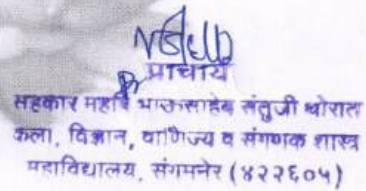 प्राचार्य
सहकार महर्षि भाऊसाहेब संतुजी थोरात
कला, विज्ञान, वाणिज्य व संगणक शास्त्र
महाविद्यालय, संगमनेर (४२२६०५)